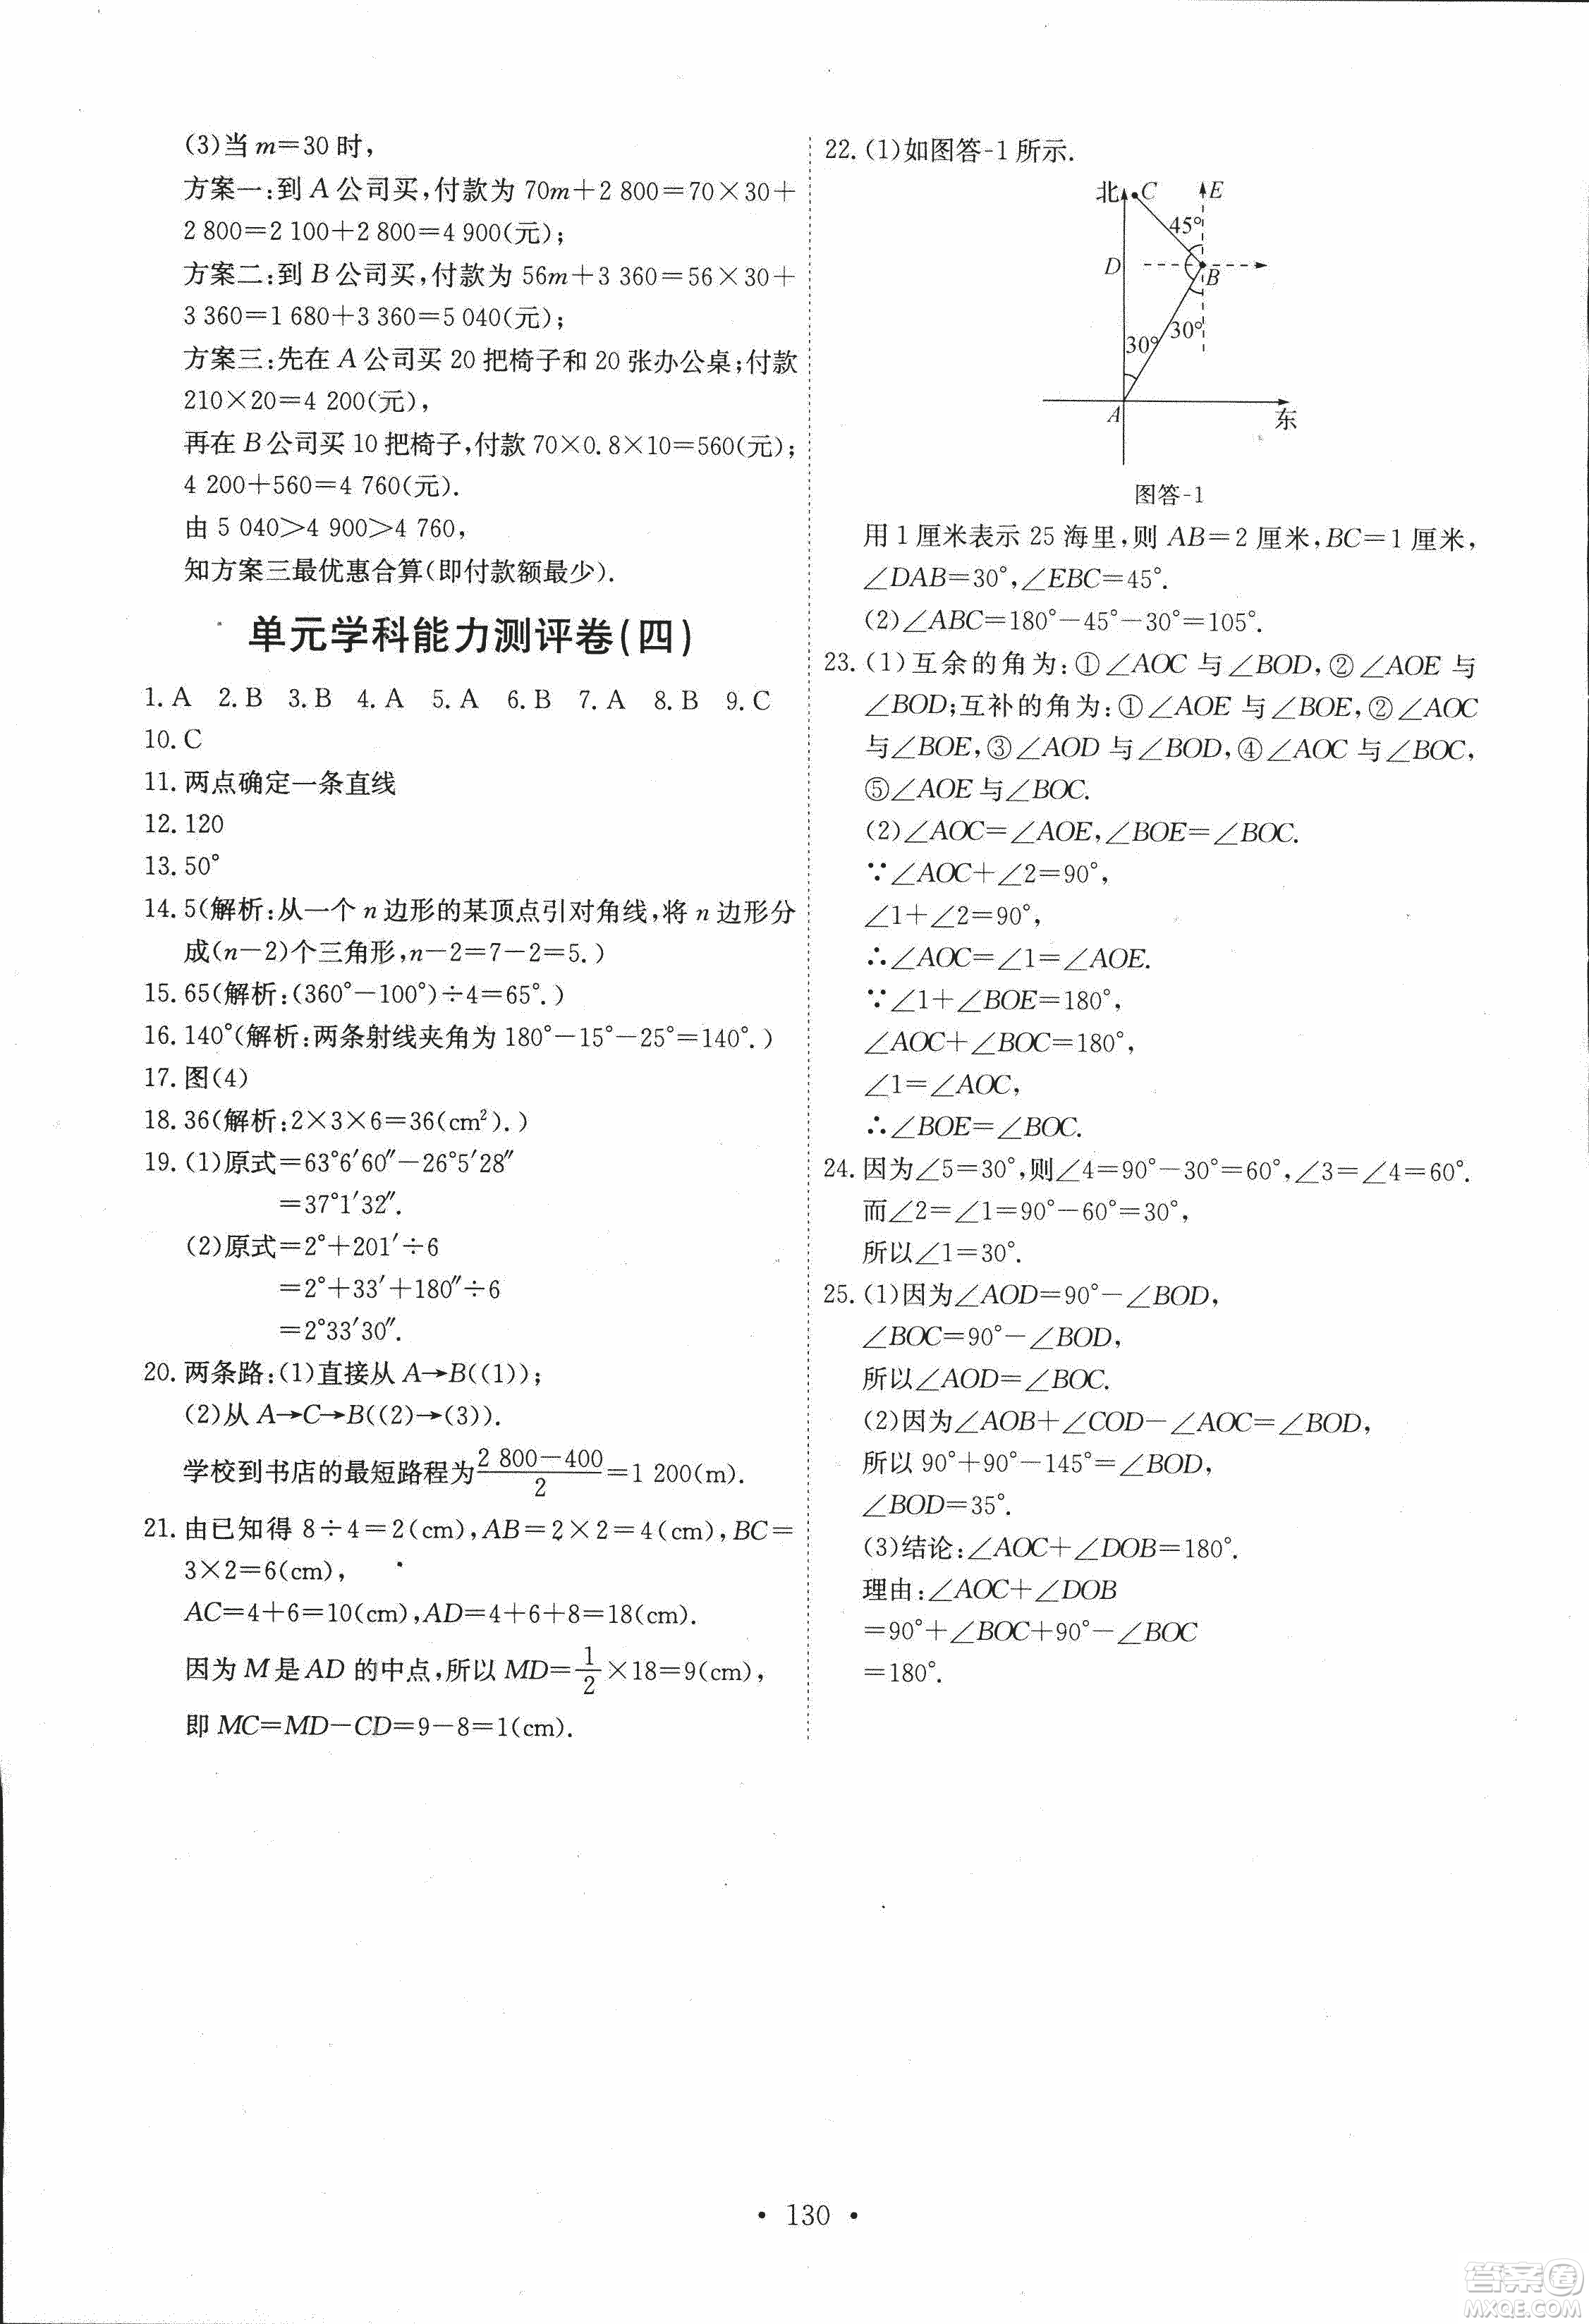 (3)当 m=30 时,
方案一:到 A 公司买,付款为 70m+2 800=70×30+
2 800=2 100+2 800=4 900(元);
方案二:到 B 公司买,付款为 56m+3 360=56×30+
3 360=1 680+3 360=5 040(元);
方案三:先在 A 公司买 20 把椅子和 20 张办公桌;付款
210×20=4 200(元),
再在 B 公司买 10 把椅子,付款 70×0.8×10=560(元);
4 200+560=4 760(元).
由 5 040>4 900>4 760,
知方案三最优惠合算(即付款额最少).
单元学科能力测评卷(四)
1. A 2. B 3. B 4. A 5. A 6. B 7. A 8. B 9. C
10. C
11. 两点确定一条直线
12. 120
13. 50°
14. 5(解析:从一个 n 边形的某顶点引对角线,将 n 边形分
成(n-2)个三角形,n-2=7-2=5.)
15. 65(解析:(360°-100°)÷4=65°.)
16. 140°(解析:两条射线夹角为 180°-15°-25°=140°.)
17. 图(4)
18. 36(解析:2×3×6=36(cm²).)
19. (1)原式=63°6′60″-26°5′28″
=37°1′32″.
(2)原式=2°+201′÷6
=2°+33′+180″÷6
=2°33′30″.
20. 两条路:(1)直接从 A→B((1));
(2)从 A→C→B((2)→(3)).
学校到书店的最短路程为 2 800-400/2=1 200(m).
21. 由已知得 8÷4=2(cm),AB=2×2=4(cm),BC=
3×2=6(cm),
AC=4+6=10(cm),AD=4+6+8=18(cm).
因为 M 是 AD 的中点,所以 MD=1/2×18=9(cm),
即 MC=MD-CD=9-8=1(cm).
22. (1)如图答-1 所示.
北 C E
45°
D B
30° 30°
A 东
图答-1
用 1 厘米表示 25 海里,则 AB=2 厘米,BC=1 厘米,
∠DAB=30°,∠EBC=45°.
(2)∠ABC=180°-45°-30°=105°.
23. (1)互余的角为:①∠AOC 与∠BOD,②∠AOE 与
∠BOD;互补的角为:①∠AOE 与∠BOE,②∠AOC
与∠BOE,③∠AOD 与∠BOD,④∠AOC 与∠BOC,
⑤∠AOE 与∠BOC.
(2)∠AOC=∠AOE,∠BOE=∠BOC.
∵∠AOC+∠2=90°,
∠1+∠2=90°,
∴∠AOC=∠1=∠AOE.
∵∠1+∠BOE=180°,
∠AOC+∠BOC=180°,
∠1=∠AOC,
∴∠BOE=∠BOC.
24. 因为∠5=30°,则∠4=90°-30°=60°,∠3=∠4=60°.
而∠2=∠1=90°-60°=30°,
所以∠1=30°.
25. (1)因为∠AOD=90°-∠BOD,
∠BOC=90°-∠BOD,
所以∠AOD=∠BOC.
(2)因为∠AOB+∠COD-∠AOC=∠BOD,
所以 90°+90°-145°=∠BOD,
∠BOD=35°.
(3)结论:∠AOC+∠DOB=180°.
理由:∠AOC+∠DOB
=90°+∠BOC+90°-∠BOC
=180°.
• 130 •
答案圈
MXQE.COM